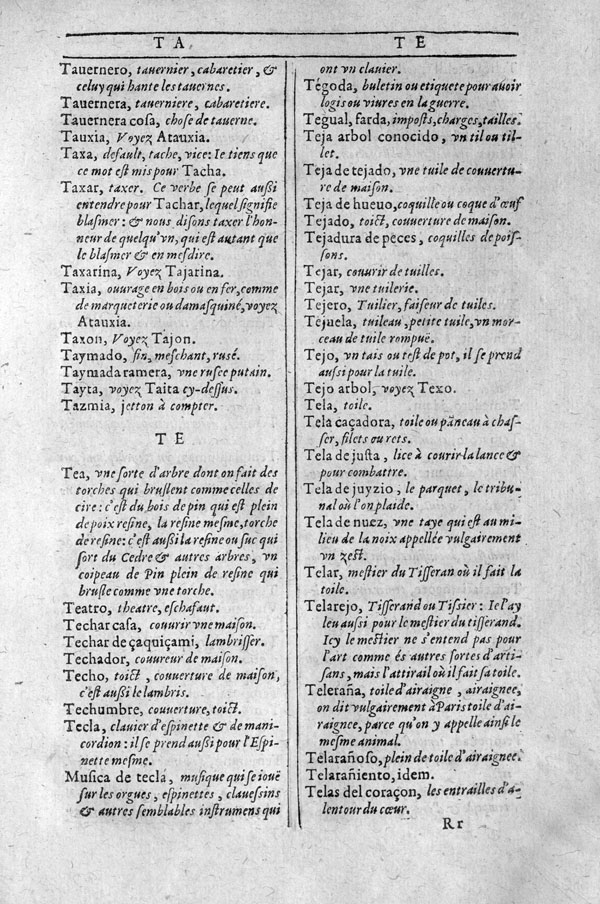 T A
T E
Tauernero, tauernier, cabaretier, &
celuy qui hante les tauernes.
Tauernera, tauerniere, cabaretiere.
Tauernera cosa, chose de tauerne.
Tauxia, Voyez Atauxia.
Taxa, default, tache, vice: Ie tiens que
ce mot est mis pour Tacha.
Taxar, taxer. Ce verbe se peut aussi
entendre pour Tachar, lequel signifie
blasmer: & nous disons taxer l'hon-
neur de quelqu'vn, qui est autant que
le blasmer & en mesdire.
Taxarina, Voyez Tajarina.
Taxia, ouurage en bois ou en fer, comme
de marqueterie ou damasquiné, voyez
Atauxia.
Taxon, Voyez Tajon.
Taymado, fin, meschant, rusé.
Taymada ramera, vne rusee putain.
Tayta, voyez Taita cy-dessus.
Tazmia, jetton à compter.
T E
Tea, vne sorte d'arbre dont on fait des
torches qui bruslent comme celles de
cire: c'est du bois de pin qui est plein
de poix resine, la resine mesme, torche
de resine: c'est aussi la resine ou suc qui
sort du Cedre & autres arbres, vn
coipeau de Pin plein de resine qui
brusle comme vne torche.
Teatro, theatre, eschafaut.
Techar casa, couurir vne maison.
Techar de çaquiçami, lambrisser.
Techador, couureur de maison.
Techo, toict, couuerture de maison,
c'est aussi le lambris.
Techumbre, couuerture, toict.
Tecla, clauier d'espinette & de mani-
cordion: il se prend aussi pour l'Espi-
nette mesme.
Musica de tecla, musique qui se iouë
sur les orgues, espinettes, clauessins
& autres semblables instrumens qui
ont vn clauier.
Tégoda, buletin ou etiquete pour auoir
logis ou viures en la guerre.
Tegual, farda, imposts, charges, tailles.
Teja arbol conocido, vn til ou til-
let.
Teja de tejado, vne tuile de couuertu-
re de maison.
Teja de hueuo, coquille ou coque d'œuf
Tejado, toict, couuerture de maison.
Tejadura de peces, coquilles de pois-
sons.
Tejar, couurir de tuilles.
Tejar, vne tuilerie.
Tejero, Tuilier, faiseur de tuiles.
Tejuela, tuileau, petite tuile, vn mor-
ceau de tuile rompuë.
Tejo, vn tais ou test de pot, il se prend
aussi pour la tuile.
Tejo arbol, voyez Texo.
Tela, toile.
Tela caçadora, toile ou pãneau à chas-
ser, filets ou rets.
Tela de justa, lice à courir la lance &
pour combattre.
Tela de juyzio, le parquet, le tribu-
nal où l'on plaide.
Tela de nuez, vne taye qui est au mi-
lieu de la noix appellée vulgairement
vn zest.
Telar, mestier du Tisseran où il fait la
toile.
Telarejo, Tisserand ou Tissier: Ie l'ay
leu aussi pour le mestier du tisserand.
Icy le mestier ne s'entend pas pour
l'art comme és autres sortes d'arti-
sans, mais l'attirail où il fait sa toile.
Teleraña, toile d'airaigne, airaignee,
on dit vulgairement à Paris toile d'ai-
raignee, parce qu'on y appelle ainsi le
mesme animal.
Telarañoso, plein de toile d'airaignee.
Telarañiento, idem.
Telas del coraçon, les entrailles d'a-
lentour du cœur.
Rr